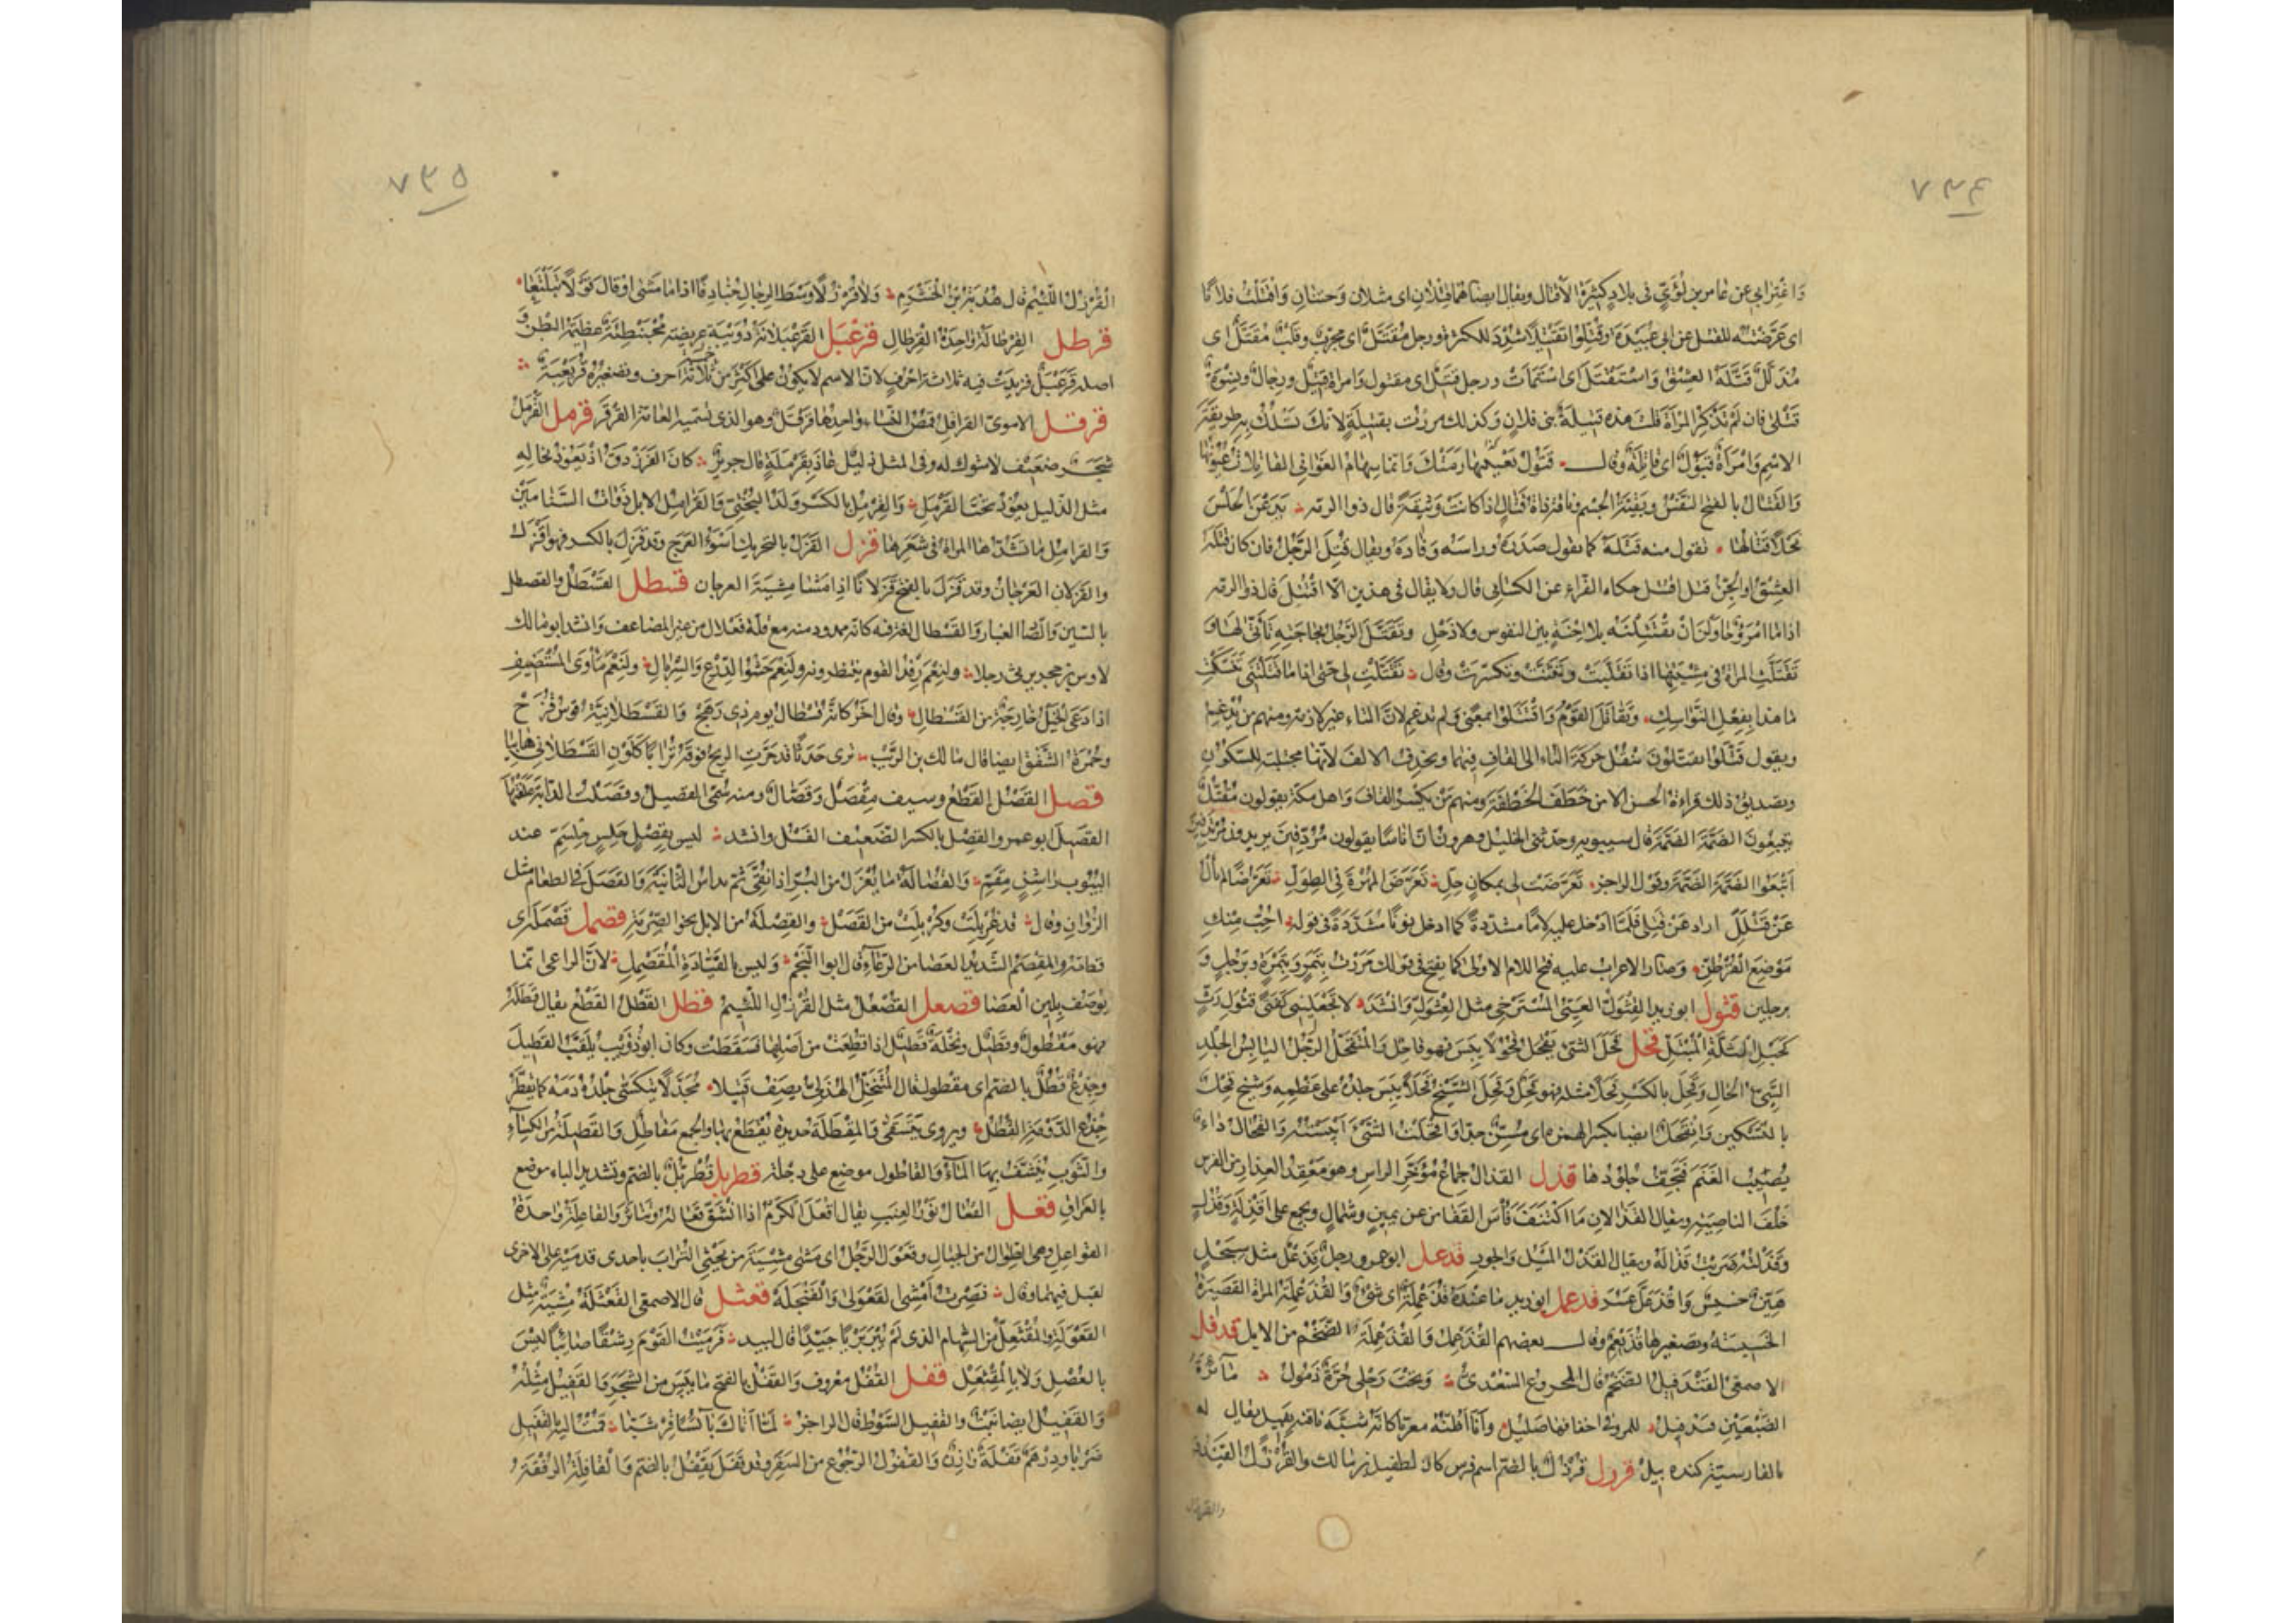 ٧٣٤
وَاغْتِرابي عن عامر بن لُؤَيٍّ في بلادٍ كثيرة الأقتال ويقال ايضا هما قِتْلانِ اى مثلان وَحتنانِ وَاقتلتُ فلانًا
اى عَرَّضْتُه للقتل عن ابى عُبَيْدَة وقُتِّلُوا تقتيلًا شُدِّدَ للكثرة ورجل مُقَتَّلٌ اى مجرّبٌ وقلبٌ مُقَتَّلٌ اى
مُذَلَّلٌ قَتَّلَهُ العِشْقُ وَاسْتَقْتَلَ اى اسْتَمَاتَ ورجل قتيلٌ اى مقتول وامراة قتيلٌ ورجالٌ ونِسْوَةٌ
قَتْلى فان لم تَذْكُرِ المرْأةَ قلتَ هذه قتيلةُ بنى فلانٍ وكذلك مررت بقتيلةٍ لانكَ تَسْلُكُ به طريقةَ
الاسم وَامْرَأةٌ قَتُولٌ اى قاتِلَةٌ وقال قَتُولٌ بعينيها رَمَتْكَ وانما سِهامُ الغَوانى القاتِلاتُ عُيُونُها
وَالقَتالُ بالفتح النَّفْسُ وبقيّةُ الجِسْم وناقة ذاتُ قَتالٍ اذا كانت وَثِيقَةً قال ذو الرمّه يَدَعْنَ الجَلْسَ
نَحْلًا قَتالُها تقول منه قَتَلَهُ كما تقول صَدَرَهُ وراسَه وَفَأدَهُ ويقال قُتِلَ الرّجُلُ فان كان قَتَلَهُ
العِشْقُ او الجِنُّ قيل اقتُتِلَ حكاه الفرّاء عن الكسائى قال ولا يقال فى هذين الّا اقْتُتِلَ قال ذو الرمّه
اذا ما امْرُؤٌ حاوَلْنَ اَنْ يَقْتَتِلْنَه بلا اِحْنَةٍ بين النفوس ولا ذَحْلِ وتَقَتَّلَ الرّجُلُ لحاجَتِه تَأتّى لها وَ
تَقَتَّلَتِ المراة فى مِشْيَتِها اذا تقلّبَت وتَثَنّتْ وتكسّرَت وقال تَقَتَّلْتِ لى حَتّى اذا ما قَتَلْتِنى تَنَسَّكْتِ
ما هذا بِفِعْلِ النَّواسِكِ وتَقَاتَلَ القَوْمُ وَاقْتَتَلُوا بمعنىً ولم تُدغم لانّ التاء غير لازمة ومنهم من يُدغِم
ويقول قَتَّلُوا يَقتّلون ينقُل حركة التاء الى القاف فيهما ويحذف الالف لانّها مجتلبة للسّكون
وتصديق ذلك قراءة الحسن الّا من خَطَّفَ الخَطْفَةَ ومنهم مَن يكسر القاف وَاهل مكّة يقولون مُقُتِّلٌ
يُتبِعُونَ الضَّمَّةَ الضَّمَّةَ قال سيبويه وحدّثنى الخليل وهرون انّ ناسًا يقولون مُرُدِّفِينَ يريدون مُرْتَدِفِينَ
اَتْبَعُوا الضَّمَّةَ الضَّمَّةَ وقول الراجز تَعَرَّضَتْ لى بمكانٍ حِلّ تَعَرُّضَ المُهْرَةِ فى الطِوَلّ تَعَرُّضًا لم تأْلُ
عَنْ قَتْلَلِّ اراد عن قَتْلى فلمّا اَدخل عليه لامًا مشدّدةً كما ادخل نونًا مُشدّدَةً فى قوله اُحِبُّ مِنْكِ
مَوْضِعَ القُرْطُنِّ وصار الاعراب عليه فتح اللام الاولى كما يفتح فى قولك مررت بتمرٍ وبتمرةٍ وبرجلٍ وَ
برجلين قثول ابو زيد القِثْوَلُّ العَيِىُّ المُسْتَرخى مثل العِثْوَلِّ وَانشدَ لا تَجْعَلِينى كَفَتىً قِثْوَلِّ رَثٍّ
كحبل الثَلَّةِ المُبْتَلِّ قحل قَحَلَ الشئ يَقْحَلُ قُحولًا يَبِسَ فهو قاحِلٌ وَالمُتَقَحِّلُ الرّجُل اليابِسُ الجِلْدِ
السَّيِّئُ الحالِ وَقَحِلَ بالكسرِ قَحَلًا مثله فهو قَحِلٌ وقَحِلَ الشَّيْخُ قَحَلًا يَبِسَ جِلْدُه على عَظْمِه وَشيخ قَحْلٌ
بالتسكين وَاِنْقَحْلٌ ايضا بكسر الهمزه اى مُسِنٌّ جدّا وَاقحلتُ الشئَ اَيبَسْتُه والقُحالُ داءٌ
يُصيب الغَنَم فتَجِفُّ جلودها قذل القذال جماعُ مُؤَخَّرِ الراس وهو مَعْقِد العِذار من الفرس
خَلْفَ الناصية ويقال القَذالانِ ما اكْتَنَفَ فأسَ القَفا من عن يمين وشمال ويجمع على اَقْذِلَةٍ وَقُذُلٍ
وَقَذَلْتُه ضربتُ قَذالَهُ ويقال القَذَلُ المَيْلُ والجور قذعل ابو عمرو رجل قِذَعْلٌ مثل سِبَحْلٍ
هَيِّنٌ خسيسٌ وَاقْذَعَلَّ عَسُرَ قذعمل ابو زيد ما عندَه قُذَعْمِلَةٌ اى شئ وَالقُذَعْمِلَةُ المراة القصيرةُ
الخسيسة وتصغيرها قُذَيْعِمٌ وقال بعضهم القُذَعْمِلُ وَالقُذَعْمِلَةُ الضّخم من الابل قدفل
الاصمعى القَنْدَفِيلُ الضخم قال المخروع السَّعْدىّ وَتحتَ رَحْلى حُرَّةٌ ذَمُولُ مائرةُ
الضَّبْعَيْنِ قندفيل للمرو فى اخفافها صليل وَاَنا اَظُنّه معرّبا كانّه شبّه ناقته بفيل يقال له
بالفارسيّة كنده پيل قرزل قُرْزُلٌ بالضم اسم فرس كان لطفيل بن مالك والقُرْزُلُ القَيْدُ
والقرزل
٧٣٥
القُرْزُلُ اللَّئيم قال هُدْبَة بن الخَشْرَمِ وَلا قُرْزُلًا وَسْطَ الرجالِ جُنادِفًا اذا ما مَشَى او قال قَوْلًا تَبَلْتَعا
قرطل القِرْطالَةُ واحِدَةُ القِرْطالِ قرعبل القَرَعْبَلانَةُ دُوَيْبَةٌ عريضة مُحْبَنْطِئَةٌ عظيمة البَطْنِ وَ
اصله قَرَعْبَلٌ فزيدت فيه ثلاثة احرفٍ لانّ الاسم لا يكون على اكثر من خمسة احرف وتصغيره قُرَيْعِبَةٌ
قرقل الاموىّ القراقِلُ قُمُصُ النساء واحدها قَرْقَلٌ وهو الذى تسمّيه العامّة القَرْقَر قرمل القَرْمَلُ
شَجَرٌ ضعيف لا شوك له وفى المثل ذليلٌ عاذَ بِقَرْمَلَةٍ قال جرير كان الفَرَزْدَقُ اذ يعوذ بخاله
مثل الذّليل يعُوذُ تحتَ القَرْمَلِ وَالقِرْمِلُ بالكسر ولد البُخْتىّ وَالقرامِلُ الابل ذوات السّنامَيْن
وَالقرامِلُ ما تشدّها المراة فى شعرها قزل القَزَلُ بالتحريك اَسْوَءُ العَرَجِ وقد قَزِلَ بالكسر فهو اَقْزَلُ
والقَزَلانِ العَرَجانُ وقد قَزَلَ بالفتح قَزَلانًا اذا مَشا مِشيَةَ العرجان قسطل القَسْطَلُ والقصطل
بالسّين وَالصّاد الغبار وَالقَسْطال لغة فيه كانّه ممدود منه مع قلّة فَعْلال من غير المضاعف وَانشد ابو مالك
لاوس بن حجر يرثى رجلا ولَنِعْمَ رِفْدُ القوم ينتظرونه ولَنِعْمَ حَشْوُ الدِّرْعِ وَالسِّرْبالِ ولَنِعْمَ مَأوَى المُسْتَضِيفِ
اذا دَعَى وَالخَيْلُ خارِجَةٌ من القَسْطالِ وقال اخر كانّه قَسْطالُ يوم ذى رَهَجْ وَالقَسْطلانِيّة قوس قُزَحَ
وحُمْرَةُ الشَّفَق ايضا قال مالك بن الرَّيْب ترى جَدَثًا قد جَرَّتِ الريحُ فوقه تُرابًا كَلَوْنِ القَسْطَلانىِّ هابِيا
قصل القَصْلُ القَطْعُ وسيف مِقْصَلٌ وَقَصّالٌ ومنه سُمّى القصيلُ وقَصَلْتُ الدابّة عَلَفْتُها
القصيلَ ابو عمرو والقِصْلُ بالكسر الضعيف الفَسْلُ وانشد ليس بقِصْلٍ حَلِسٍ حِلْسَمّ عند
البُيُوت راشِنٍ مِقَمِّ وَالقُصالَةُ ما يُعْزَلُ من البُرّ اذا نُقِّىَ ثمّ يداس الثّانيةَ وَالقَصَلُ فى الطعام مثل
الزُّوانِ وقال قد غُرْبِلَتْ وكُرْبِلَتْ من القَصَلْ والقِصْلَةُ من الابل نحو الصِّرْمَةِ قصمل قَصْمَلَهُ اى
قطعه والمُقَصْمِلُ الشديد العصا من الرِّعاءِ قال ابو النّجم وَليس بالقَيّادَةِ المُقَصْمِلِ لانّ الراعى انّما
يُوصَفُ بلين العَصا قصعل القُصْعُلُ مثل القُرْزُلِ اللَّئيمُ قطل القَطْلُ القَطْعُ يقال قطَلَهُ
فهو مَقْطُولٌ وقَطِيلٌ ونخلةٌ قَطِيلٌ اذا قُطِعَتْ من اَصْلِها فسَقَطَتْ وكان ابو ذُؤَيبٍ يلقَّبُ القَطِيلَ
وجِذْعٌ قُطُلٌ بالضّم اى مقطول قال المُتَنَخِّلُ الهذلىّ يصف قَتيلا مُجَدَّلًا يتكَسّى جلدُه دَمَهُ كما يُقَطَّرُ
جِذْعُ الدَّوْمَةِ القُطُلُ ويروى يتسقّى وَالمِقْطَلَةُ حديدة يُقْطَعُ بها والجمع مَقاطِلُ وَالقَطِيلَةُ من الكساءِ
والثّوب يُنَشَّفُ بها الماءُ وَالقاطول موضع على دِجلة قطربل قُطْرُبُّلٌ بالضم وتشديد الباء موضع
بالعراق قعل القُعالُ نَوْرُ العِنَبِ يقال اَقْعَلَ الكَرْمُ اذا انشَقّ قُعاله وتناثر وَالقاعِلَةُ واحدَةُ
القواعل وهى الطِوال من الجبال وقَعْوَلَ الرّجُلُ اى مَشى مِشيَةَ من يَحْثِى التُرابَ باحدى قدميه على الاخرى
لقبل فيهما وقال فَصِرْتُ اَمْشِى القَعْوَلى وَالفَنْجَلَهْ قعثل قال الاصمعى القَعْثَلَةُ مِشْيَةٌ مثل
القَعْوَلَةِ والمُقْثَعِلُّ من السهام الذى لَمْ يُبْرَ بَرْيًا جَيّدًا قال لبيد فرميت القَوْمَ رِشْقًا صائبًا ليسَ
بالعُصْلِ وَلا بالمُقْثَعِلّ قفل القُفْلُ معروف وَالقَفْلُ بالفتح ما يَبِسَ من الشَّجَرِ وَالقَفِيلُ مِثْلُهُ
وَالقفيلُ ايضا نَبْتٌ والقفيل السَّوْطُ قال الراجز لمّا اَتاكَ يابسًا قِرْشَبّا قُمْتَ اليه بالقَفِيلِ
ضَرْبا ودِرْهَمٌ قَفْلَةٌ وازِنٌ وَالقُفُولُ الرّجُوع من السَفَرِ وقد قَفَلَ يَقْفُلُ بالضم وَالقافِلَةُ الرُفْقَةُ